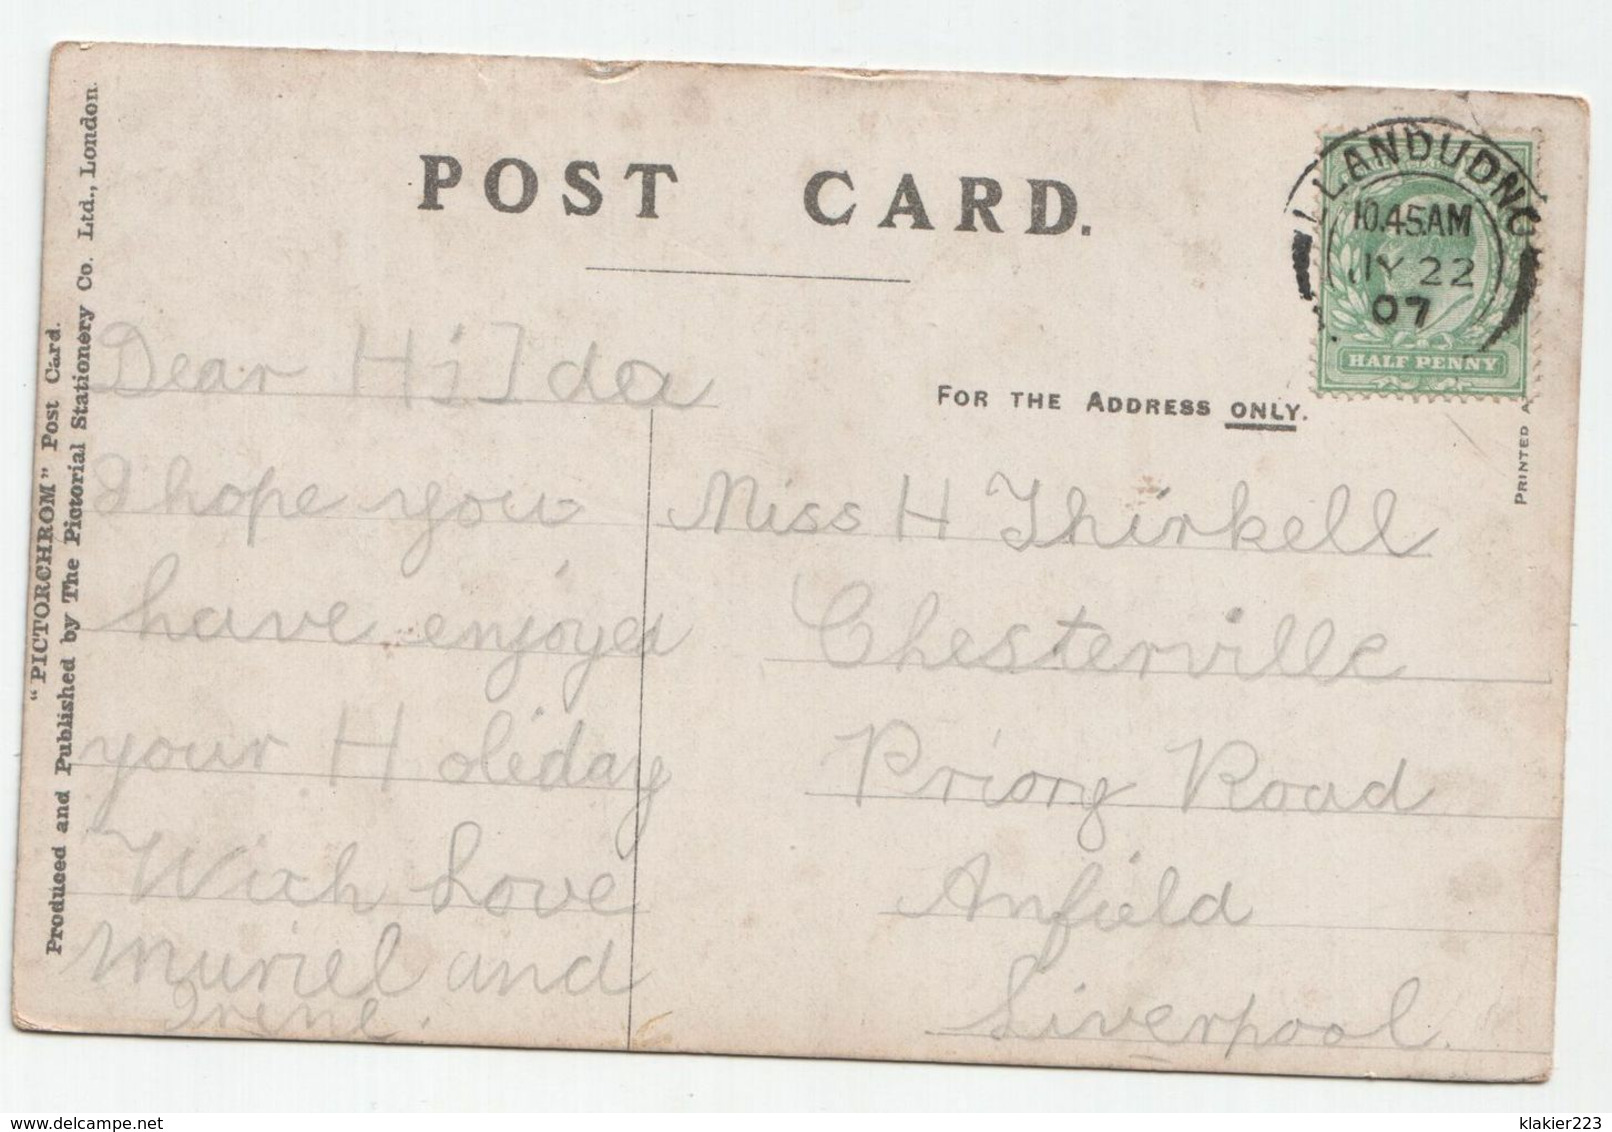 POST CARD.
LLANDUDNO
10.45AM
JY 22
07
HALF PENNY
FOR THE ADDRESS ONLY.
PRINTED
"PICTORCHROM" Post Card.
Produced and Published by The Pictorial Stationery Co. Ltd., London.
Dear Hilda
I hope you
have enjoyed
your Holiday
With Love
Muriel and
Irene.
Miss H Thirkell
Chesterville
Priory Road
Anfield
Liverpool.
delcampe.net
klakier223